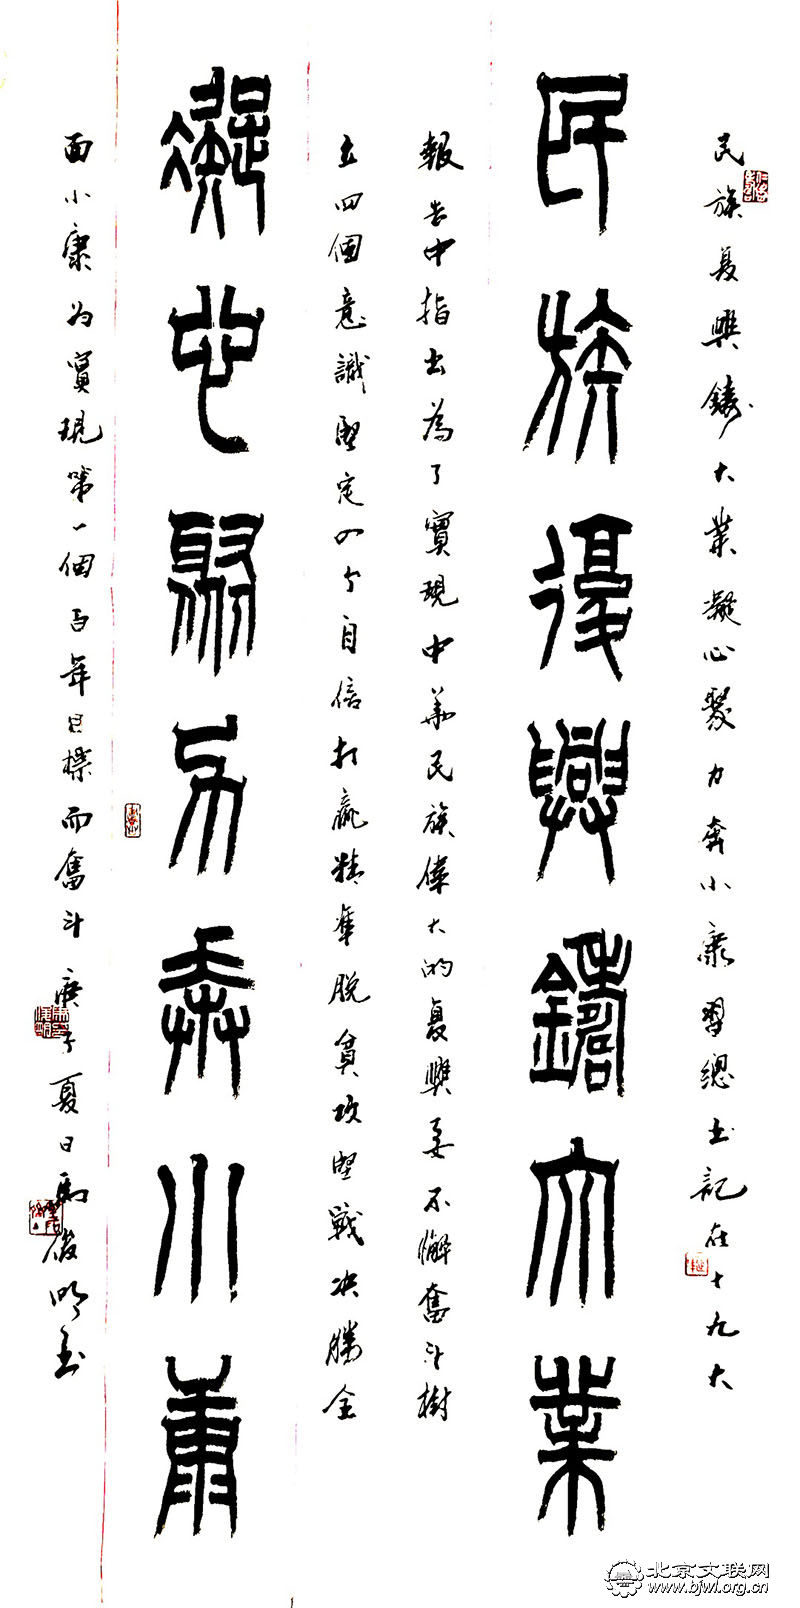 民族复興鑄大業凝心聚力奔小康習總书記在十九大
民族復興鑄大業
報告中指出為了實現中華民族偉大的复興要不懈奮斗樹
立四個意識堅定四个自信打贏精準脫貧攻堅戰决勝全
凝心聚力奔小康
面小康为實現第一個百年目標而奮斗庚子夏日馬俊明书
北京文联网
www.bjwl.org.cn